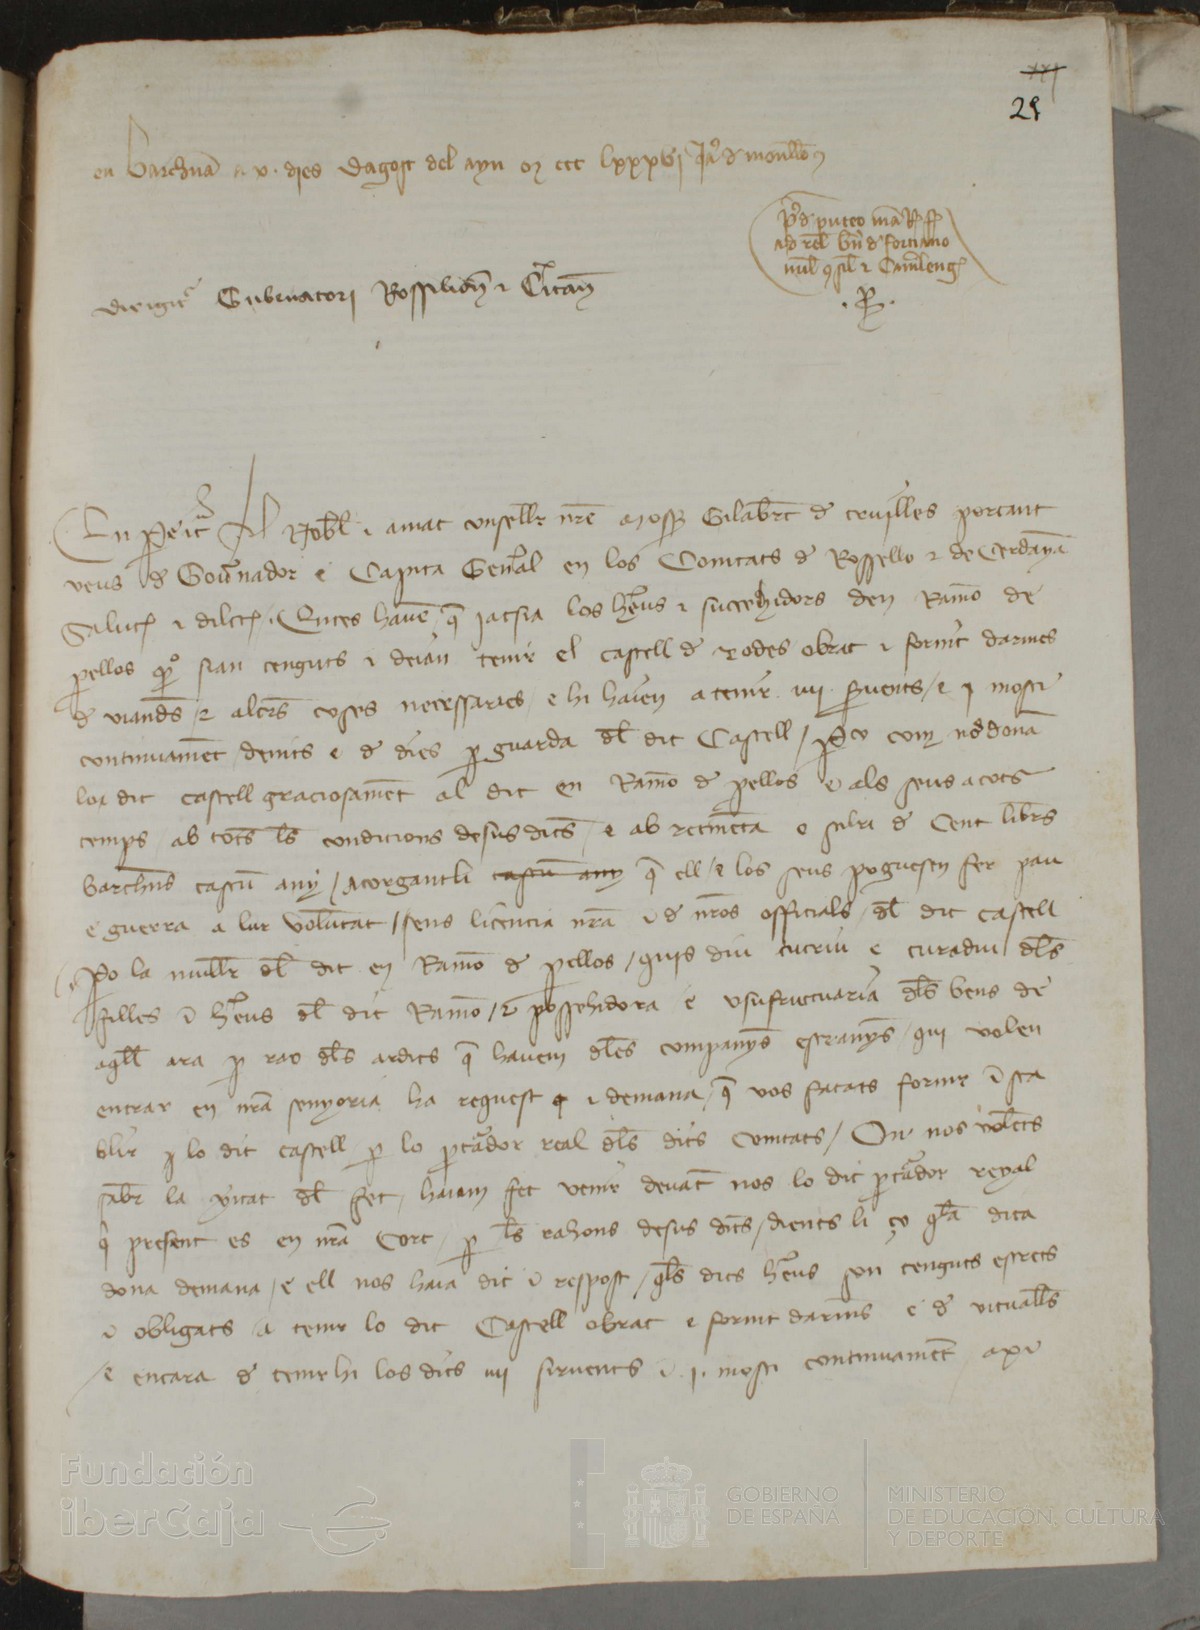 xxj
29
en barchna a v. dies dagost del ayn m ccc lxxxvi Jac de monllo
P de puteo ma R f
ad rel bn de fortiano
mil 9sil t Camleng
.P.
dirigit Gubnatori Rossilion t Citan
En Pere etc Al Nobl e amat consellr nre mossen Gilabrt de cruylles portant
veus de Gouernador e Capita Genal en los Comtats de Rossello e de Cerdanya
Salut e dileccio Entes havem que jatsia los hereus e succehidors den Ramo de
perellos quo sian tenguts e deian tenir el castell de rodes obrat e fornit darmes
de viandes e altres coses necessaries e hi haien a tenir iiij servents e j mosti
continuament de nits e de dies per guarda del dit Castell Pero com nos donam
lo dit castell graciosament al dit en Ramo de perellos e als seus a tots
temps ab totes les condicions desus dites e ab retinenta e salari de Cent libres
barchns cascun any Atorgantli cascun any que ell e los seus poguessen fer pau
e guerra a lur voluntat sens licencia nra e de nros officials del dit castell
Pero la mullr del dit en Ramo de perellos quis diu tutriu e curadriu dels
filles e hereus del dit Ramo e possehidora e usufructuaria dels bens de
aqll ara per rao dels ardits que havem de les companyes estranyes qui volen
entrar en nra senyoria ha request e demana que vos facats fornir e sta
blir lo dit castell per lo pcurador real dels dits Comtats On nos volents
saber la veritat del fet haiam fet venir devant nos lo dit pcurador reyal
qui present es en nra Cort per les rahons desus dites dients li ço que la dita
dona demana e ell nos haia dit e respost quels dits hereus son tenguts estrets
e obligats a tenir lo dit Castell obrat e fornit darmes e de vitualles
e encara de tenir hi los dits iiij sirvents e .j. mosti continuament axi
Fundación
iberCaja
GOBIERNO
DE ESPAÑA
MINISTERIO
DE EDUCACIÓN, CULTURA
Y DEPORTE